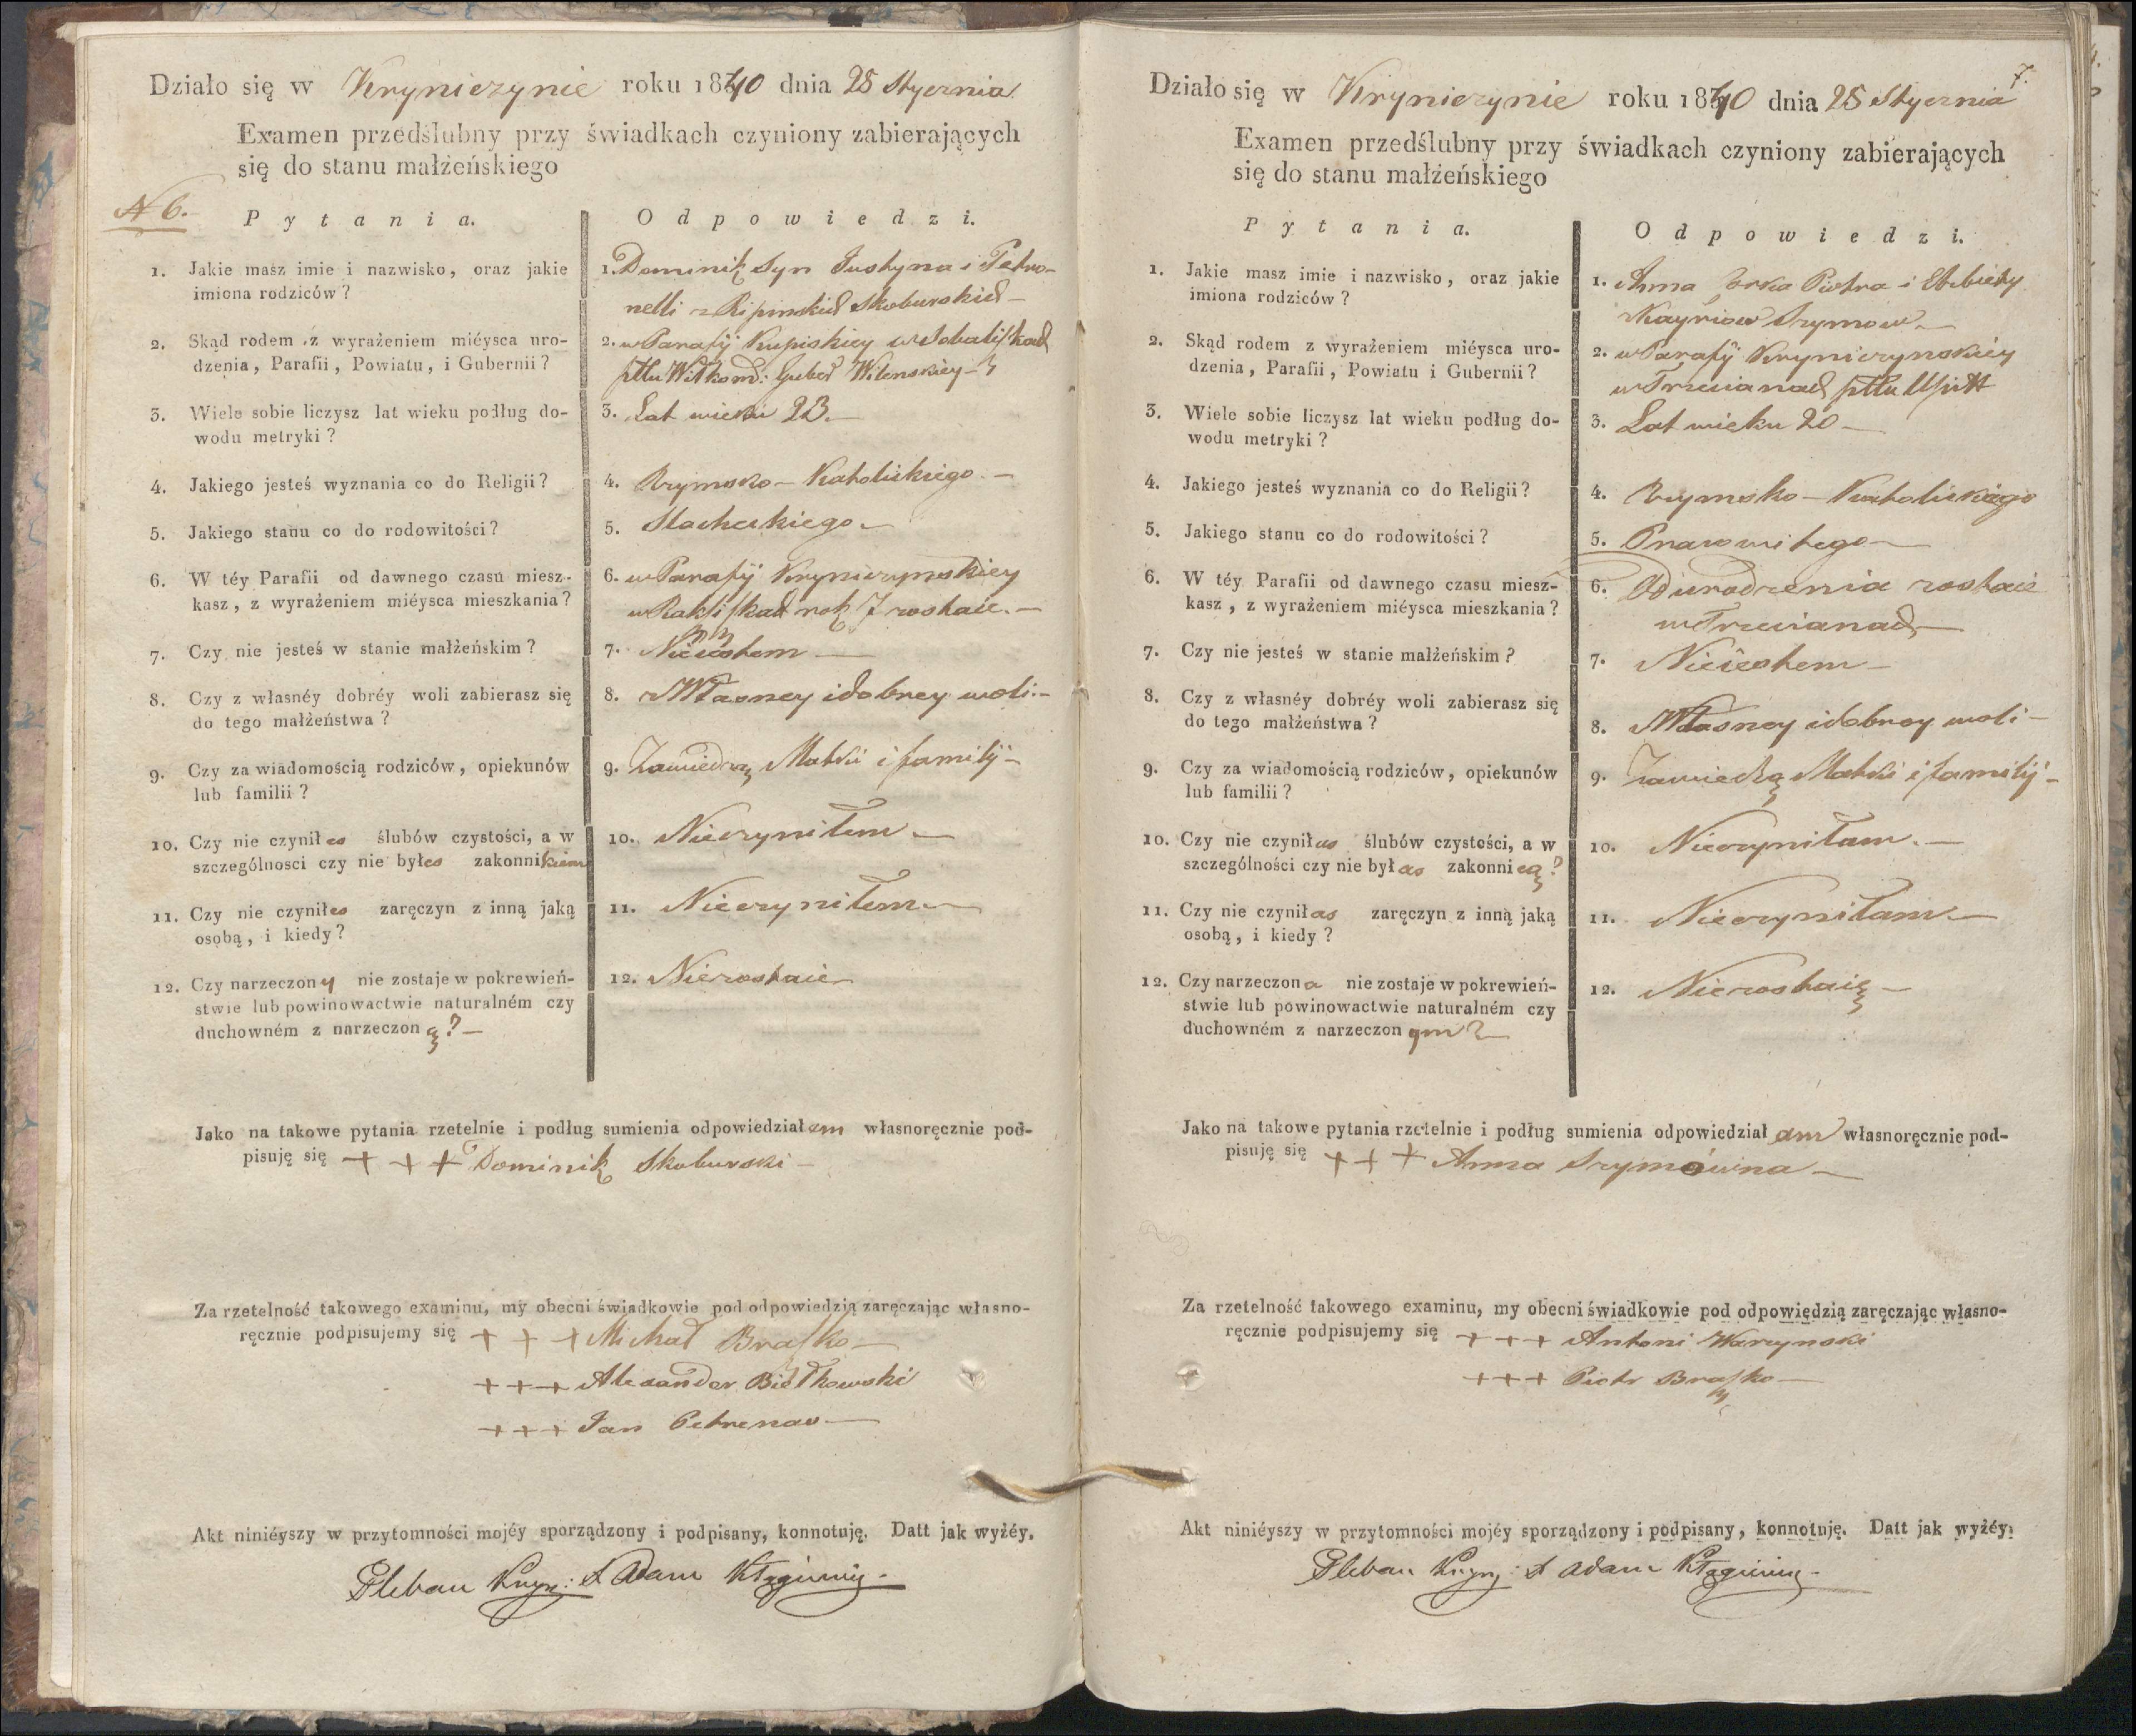 Działo się w Kryniczynie roku 1840 dnia 28 Stycznia
Examen przedślubny przy świadkach czyniony zabierających
się do stanu małżeńskiego
N 6.
Pytania.
Odpowiedzi.
1. Jakie masz imie i nazwisko, oraz jakie
imiona rodziców?
1. Dominik Syn Justyna i Petro-
nelli z Skoburskich
2. Skąd rodem z wyrażeniem miéysca uro-
dzenia, Parafii, Powiatu, i Gubernii?
2. w Parafij Kupiskiey w
pttu Wiłkom: Guber Wilenskiey
3. Wiele sobie liczysz lat wieku podług do-
wodu metryki?
3. Lat wieku 23.
4. Jakiego jesteś wyznania co do Religii?
4. Rzymsko-Katolickiego
5. Jakiego stanu co do rodowitości?
5. Slacheckiego
6. W téy Parafii od dawnego czasu miesz-
kasz, z wyrażeniem miéysca mieszkania?
6. w Parafij Kryniczynskiey
rok zostaie.
7. Czy nie jesteś w stanie małżeńskim?
7. Niéiestem
8. Czy z własnéy dobréy woli zabierasz się
do tego małżeństwa?
8. zWłasney idobrey woli.
9. Czy za wiadomością rodziców, opiekunów
lub familii?
9. Zawiedzą Matki i familij
10. Czy nie czyniłes ślubów czystości, a w
szczególnosci czy nie byłes zakonnikiem
10. Nieczyniłem
11. Czy nie czyniłes zaręczyn z inną jaką
osobą, i kiedy?
11. Nieczyniłem
12. Czy narzeczony nie zostaje w pokrewień-
stwie lub powinowactwie naturalném czy
duchowném z narzeczoną?
12. Niezostaie
Jako na takowe pytania rzetelnie i podług sumienia odpowiedziałem własnoręcznie pod-
pisuję się + + + Dominik Skoburski
Za rzetelność takowego examinu, my obecni świadkowie pod odpowiedzią zaręczając własno-
ręcznie podpisujemy się + + + Michał Braſko
+ + + Alexander Biełkowski
+ + + Jan Petrenas
Akt niniéyszy w przytomności mojéy sporządzony i podpisany, konnotuję. Datt jak wyżéy.
Pleban Kryn: X Adam
7.
Działo się w Kryniczynie roku 1840 dnia 28 Stycznia
Examen przedślubny przy świadkach czyniony zabierających
się do stanu małżeńskiego
Pytania.
Odpowiedzi.
1. Jakie masz imie i nazwisko, oraz jakie
imiona rodziców?
1. Anna Corka Piotra i Elzbiety
Szymow
2. Skąd rodem z wyrażeniem miéysca uro-
dzenia, Parafii, Powiatu i Gubernii?
2. w Parafij Kryniczynskiéy
pttu Upitt
3. Wiele sobie liczysz lat wieku podług do-
wodu metryki?
3. Lat wieku 20
4. Jakiego jesteś wyznania co do Religii?
4. Rzymsko-Katolickiégo
5. Jakiego stanu co do rodowitości?
5. Prawowitego
6. W téy Parafii od dawnego czasu miesz-
kasz, z wyrażeniem miéysca mieszkania?
6. Od urodzenia zostaie
7. Czy nie jesteś w stanie małżeńskim?
7. Niéiestem
8. Czy z własnéy dobréy woli zabierasz się
do tego małżeństwa?
8. zWłasney idobrey woli
9. Czy za wiadomością rodziców, opiekunów
lub familii?
9. Zawiedzą Matki i familij
10. Czy nie czyniłas ślubów czystości, a w
szczególności czy nie byłas zakonnicą?
10. Nieczyniłam.
11. Czy nie czyniłas zaręczyn z inną jaką
osobą, i kiedy?
11. Nieczyniłam
12. Czy narzeczona nie zostaje w pokrewień-
stwie lub powinowactwie naturalném czy
duchowném z narzeczonym?
12. Niezostaię
Jako na takowe pytania rzetelnie i podług sumienia odpowiedziałam własnoręcznie pod-
pisuję się + + + Anna Szymówna
Za rzetelność takowego examinu, my obecni świadkowie pod odpowiedzią zaręczając własno-
ręcznie podpisujemy się + + + Antoni Warzynski
+ + + Piotr Braſko
Akt niniéyszy w przytomności mojéy sporządzony i podpisany, konnotuję. Datt jak wyżéy.
Pleban Kryn: X Adam